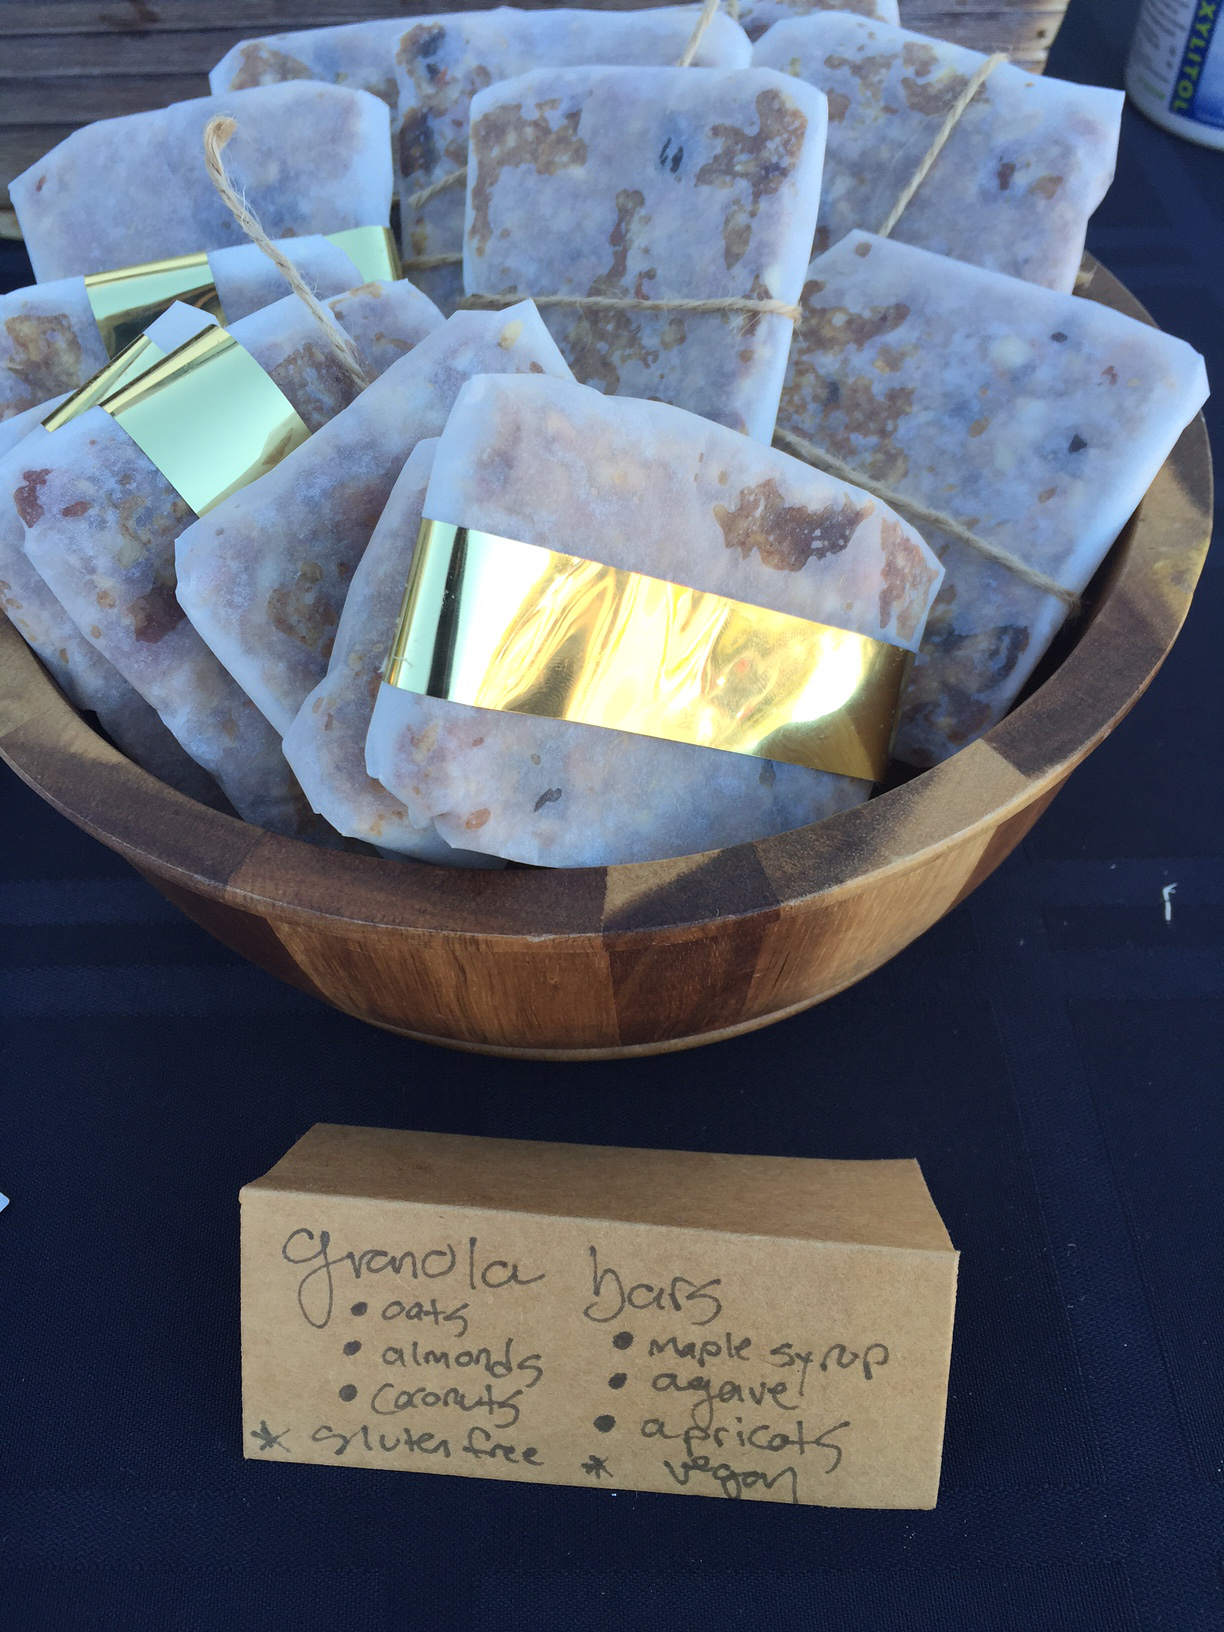 XYLITOL
granola bars
• oats
• almonds
• coconuts
* gluten free
• maple syrup
• agave
• apricots
* vegan